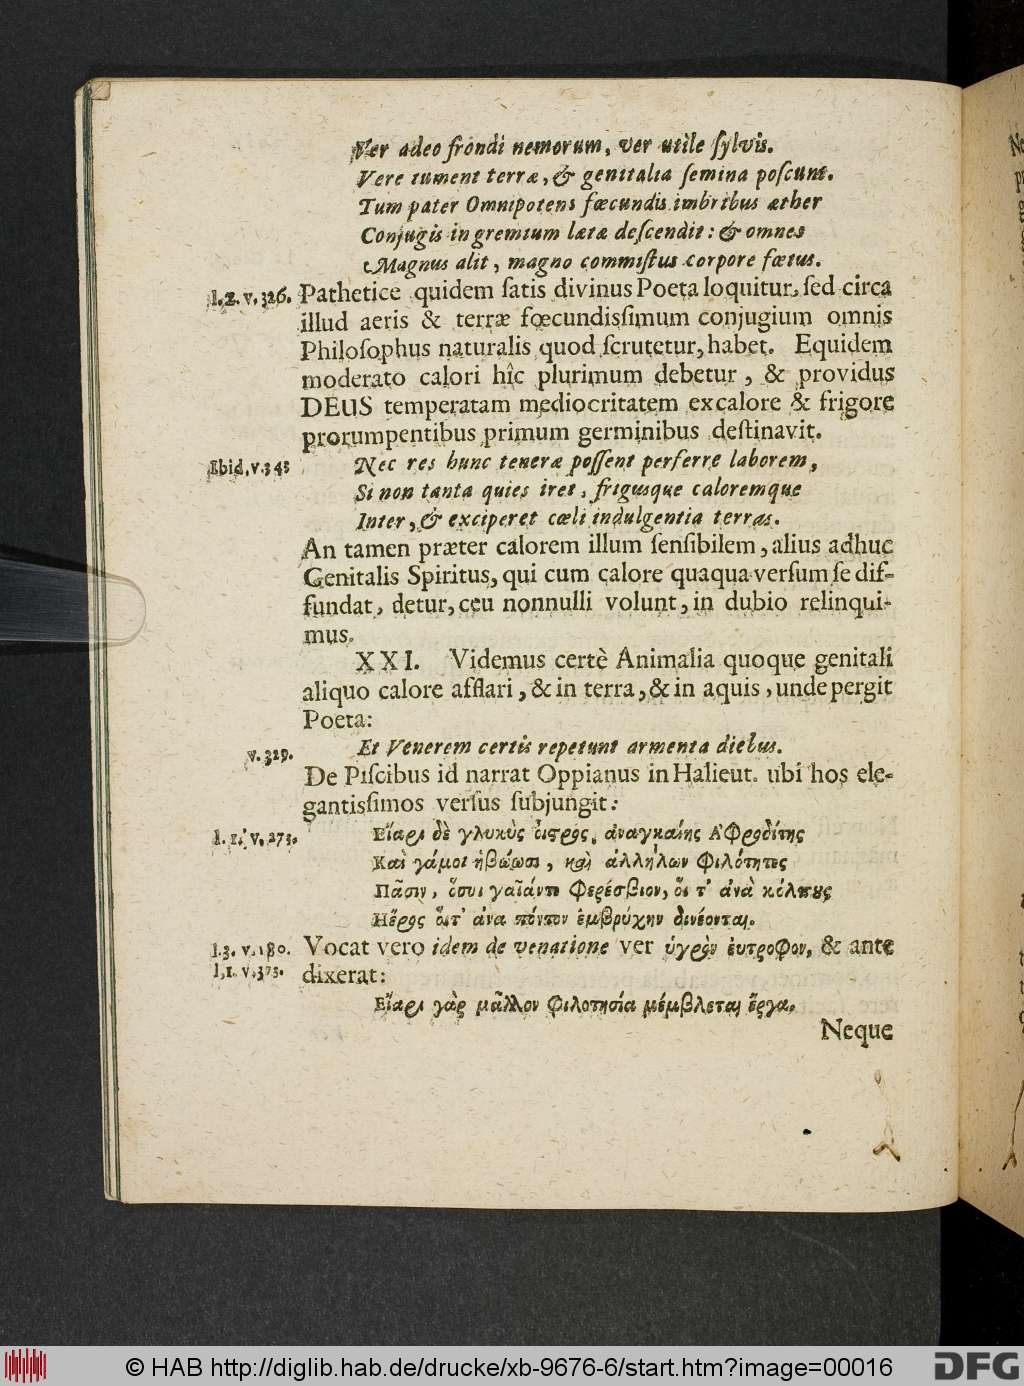 Ver adeo frondi nemorum, ver utile ſylvis.
Vere tument terræ, & genitalia ſemina poſcunt.
Tum pater Omnipotens fœcundis imbribus æther
Conjugis in gremium lætæ deſcendit: & omnes
Magnus alit, magno commiſtus corpore fœtus.
l. 2. v. 326. Pathetice quidem ſatis divinus Poeta loquitur, ſed circa
illud aeris & terræ fœcundiſsimum conjugium omnis
Philoſophus naturalis quod ſcrutetur, habet. Equidem
moderato calori hîc plurimum debetur, & providus
DEUS temperatam mediocritatem ex calore & frigore
prorumpentibus primum germinibus deſtinavit.
Ibid. v. 343 Nec res hunc teneræ poſſent perferre laborem,
Si non tanta quies iret, frigusque caloremque
Inter, & exciperet cœli indulgentia terras.
An tamen præter calorem illum ſenſibilem, alius adhuc
Genitalis Spiritus, qui cum calore quaqua verſum ſe dif-
fundat, detur, ceu nonnulli volunt, in dubio relinqui-
mus.
XXI. Videmus certè Animalia quoque genitali
aliquo calore afflari, & in terra, & in aquis, unde pergit
Poeta:
v. 329. Et Venerem certis repetunt armenta diebus.
De Piſcibus id narrat Oppianus in Halieut. ubi hos ele-
gantiſsimos verſus ſubjungit:
l. 1. v. 273. Εἴαρι δὲ γλυκὺς οἶστρος, ἀναγκαίης Ἀφροδίτης
Καὶ γάμοι ἡβώωσι, καὶ ἀλλήλων φιλότητες
Πᾶσιν, ὅσοι γαῖάντε φερέσβιον, οἵ τ' ἀνὰ κόλπους
Ἠέρος οἵτ' ἀνα πόντον ἐμβρύχην δινέονται.
l. 3. v. 180. Vocat vero idem de venatione ver ὑγρὸν ἐυτροφον, & ante
l. 1. v. 375. dixerat:
Εἴαρι γὰρ μᾶλλον φιλοτησία μέμβλεται ἔργα.
Neque
© HAB http://diglib.hab.de/drucke/xb-9676-6/start.htm?image=00016
DFG